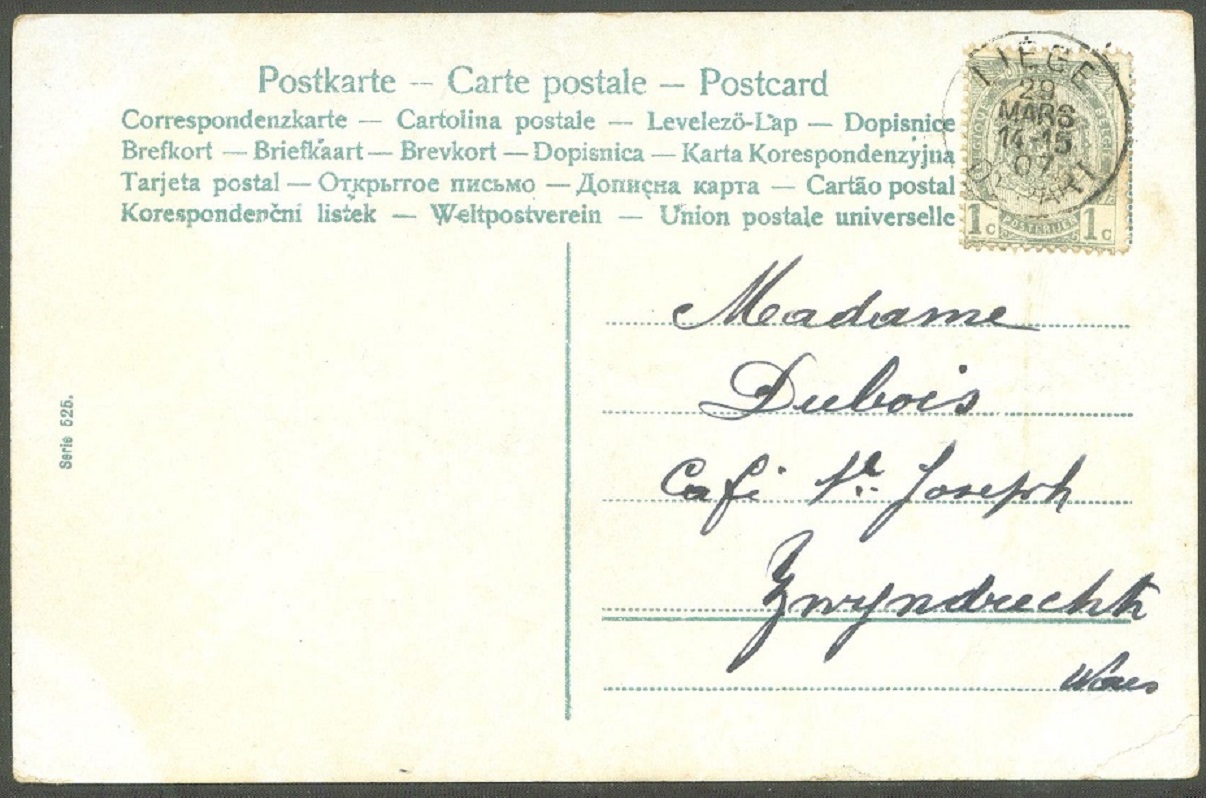 Postkarte — Carte postale — Postcard
Correspondenzkarte — Cartolina postale — Levelezö-Lap — Dopisnice
Brefkort — Briefkaart — Brevkort — Dopisnica — Karta Korespondenzyjna
Tarjeta postal — Открытое письмо — Дописна карта — Cartão postal
Korespondenční lístek — Weltpostverein — Union postale universelle
LIÉGE
29
MARS
14-15
07
DÉPART
1c POSTERIJEN 1c
Madame
Dubois
Café St. Joseph
Zwyndrecht
Waes
Serie 525.